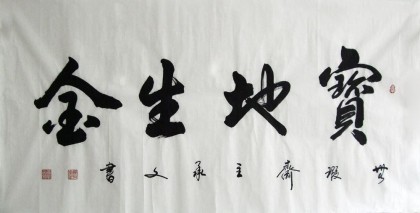 寶地生金
齋主承文書